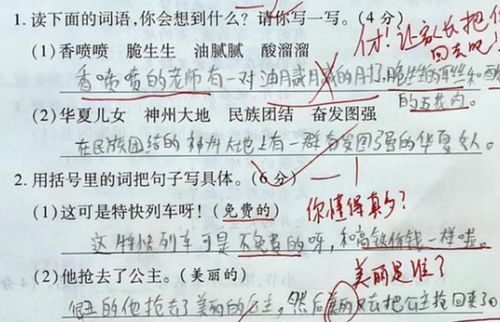 1.读下面的词语,你会想到什么?请你写一写。(4分)
付!让家长把你
(1)香喷喷 脆生生 油腻腻 酸溜溜
回去吧!
香喷喷的老师有一对油腻腻的
的五花肉。
(2)华夏儿女 神州大地 民族团结 奋发图强
在民族团结的神州大地上有一群奋发图强的华夏女人。
2.用括号里的词把句子写具体。(6分)
(1)这可是特快列车呀!(免费的)
你懂得真多?
这特快列车可是不免费的呀,和高铁价钱一样啦。
(2)他抢去了公主。(美丽的)
美丽是谁?
的他抢去了美丽的公主,然后美丽又去把公主抢回来了